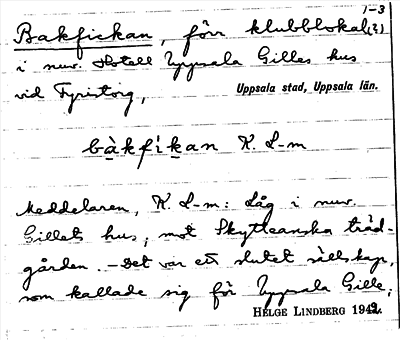 1-3
Bakfickan, förr klubblokal(?)
i nuv. Hotell Uppsala Gilles hus
vid Fyristorg,
Uppsala stad, Uppsala län.
bàkfíkan K. L-m
Meddelaren, K. L-m: Låg i nuv.
Gillets hus, mot Skytteanska träd-
gården. - Det var ett slutet sällskap,
som kallade sig för Uppsala Gille;
HELGE LINDBERG 1942.